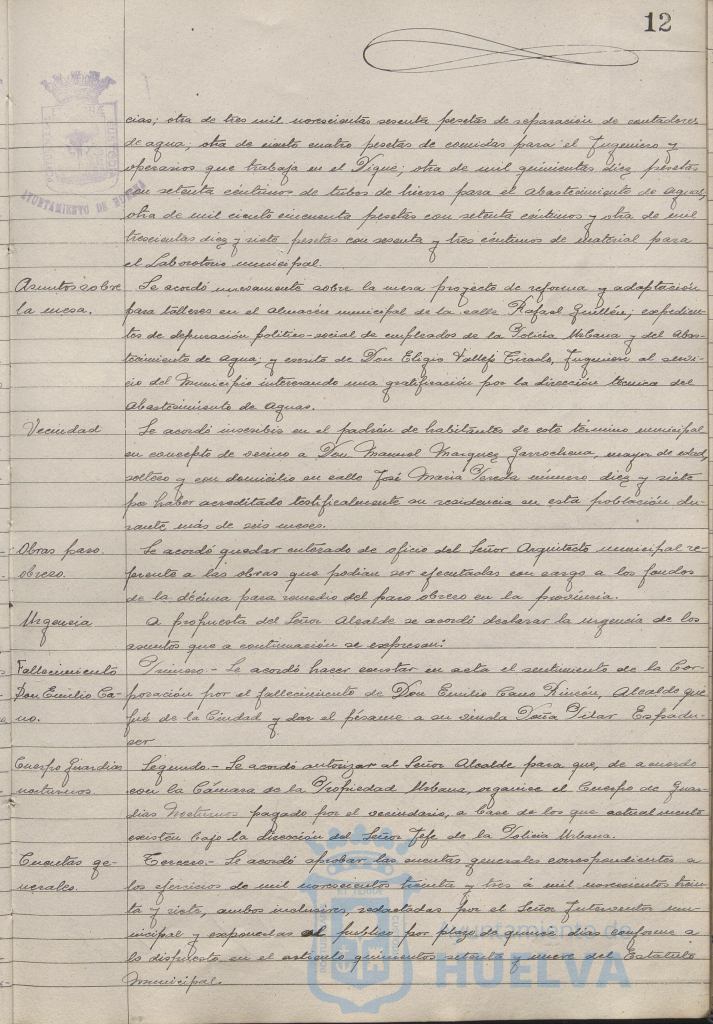 12
AYUNTAMIENTO DE HUELVA
cias; otra de tres mil novecientas sesenta pesetas de reparación de contadores
de agua; otra de ciento cuatro pesetas de comidas para el Ingeniero y
operarios que trabaja en el Dique; otra de mil quinientas diez pesetas
con setenta céntimos de tubos de hierro para el abastecimiento de aguas,
otra de mil ciento cincuenta pesetas con setenta céntimos y otra de mil
trescientas diez y siete pesetas con sesenta y tres céntimos de material para
el Laboratorio municipal.
Asuntos sobre
la mesa.
Se acordó nuevamente sobre la mesa proyecto de reforma y adaptación
para talleres en el almacén municipal de la calle Rafael Guillén; expedien-
tes de depuración político-social de empleados de la Policía Urbana y del Abas-
tecimiento de Agua; y escrito de Don Eligio Vallejo Tirado, Ingeniero al servi-
cio del Municipio interesando una gratificación por la dirección técnica del
Abastecimiento de Aguas.
Vecindad
Se acordó inscribir en el padrón de habitantes de este término municipal
en concepto de vecino a Don Manuel Marquez Garrochena, mayor de edad,
soltero y con domicilio en calle José Maria Pereda número diez y siete
por haber acreditado testificalmente su residencia en esta población du-
rante más de seis meses.
Obras paro
obrero.
Se acordó quedar enterado de oficio del Señor Arquitecto municipal re-
ferente a las obras que podian ser ejecutadas con cargo a los fondos
de la décima para remedio del paro obrero en la provincia.
Urgencia
A propuesta del Señor Alcalde se acordó declarar la urgencia de los
asuntos que a continuación se expresan:
Fallecimiento
Don Emilio Ca-
no.
Primero.- Se acordó hacer constar en acta el sentimiento de la Cor-
poración por el fallecimiento de Don Emilio Cano Rincón, Alcalde que
fué de la Ciudad y dar el pésame a su viuda Doña Pilar Espadu-
cer
Cuerpo Guardias
nocturnos.
Segundo.- Se acordó autorizar al Señor Alcalde para que, de acuerdo
con la Cámara de la Propiedad Urbana, organice el Cuerpo de Guar-
dias Nocturnos pagado por el vecindario, a base de los que actualmente
existen bajo la dirección del Señor Jefe de la Policía Urbana.
Cuentas ge-
nerales.
Tercero.- Se acordó aprobar las cuentas generales correspondientes a
los ejercicios de mil novecientos treinta y tres á mil novecientos trein-
ta y siete, ambos inclusives, redactadas por el Señor Interventor mu-
nicipal y exponerlas al publico por plazo de quince dias conforme a
lo dispuesto en el artículo quinientos setenta y nueve del Estatuto
Municipal.
Ayuntamiento de
HUELVA